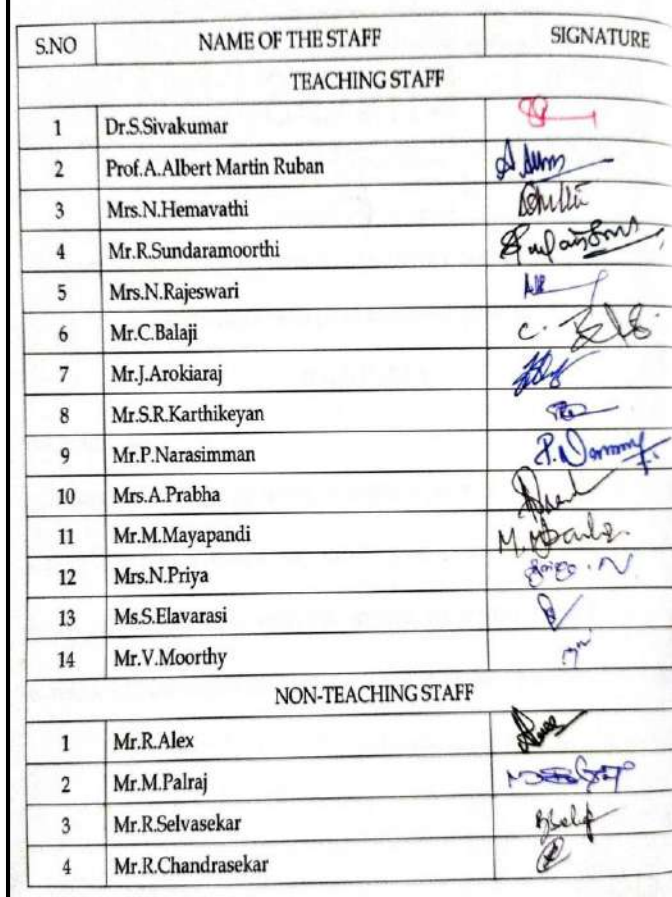 S.NO NAME OF THE STAFF SIGNATURE
TEACHING STAFF
1 Dr.S.Sivakumar
2 Prof.A.Albert Martin Ruban
3 Mrs.N.Hemavathi
4 Mr.R.Sundaramoorthi
5 Mrs.N.Rajeswari
6 Mr.C.Balaji
7 Mr.J.Arokiaraj
8 Mr.S.R.Karthikeyan
9 Mr.P.Narasimman
10 Mrs.A.Prabha
11 Mr.M.Mayapandi
12 Mrs.N.Priya
13 Ms.S.Elavarasi
14 Mr.V.Moorthy
NON-TEACHING STAFF
1 Mr.R.Alex
2 Mr.M.Palraj
3 Mr.R.Selvasekar
4 Mr.R.Chandrasekar